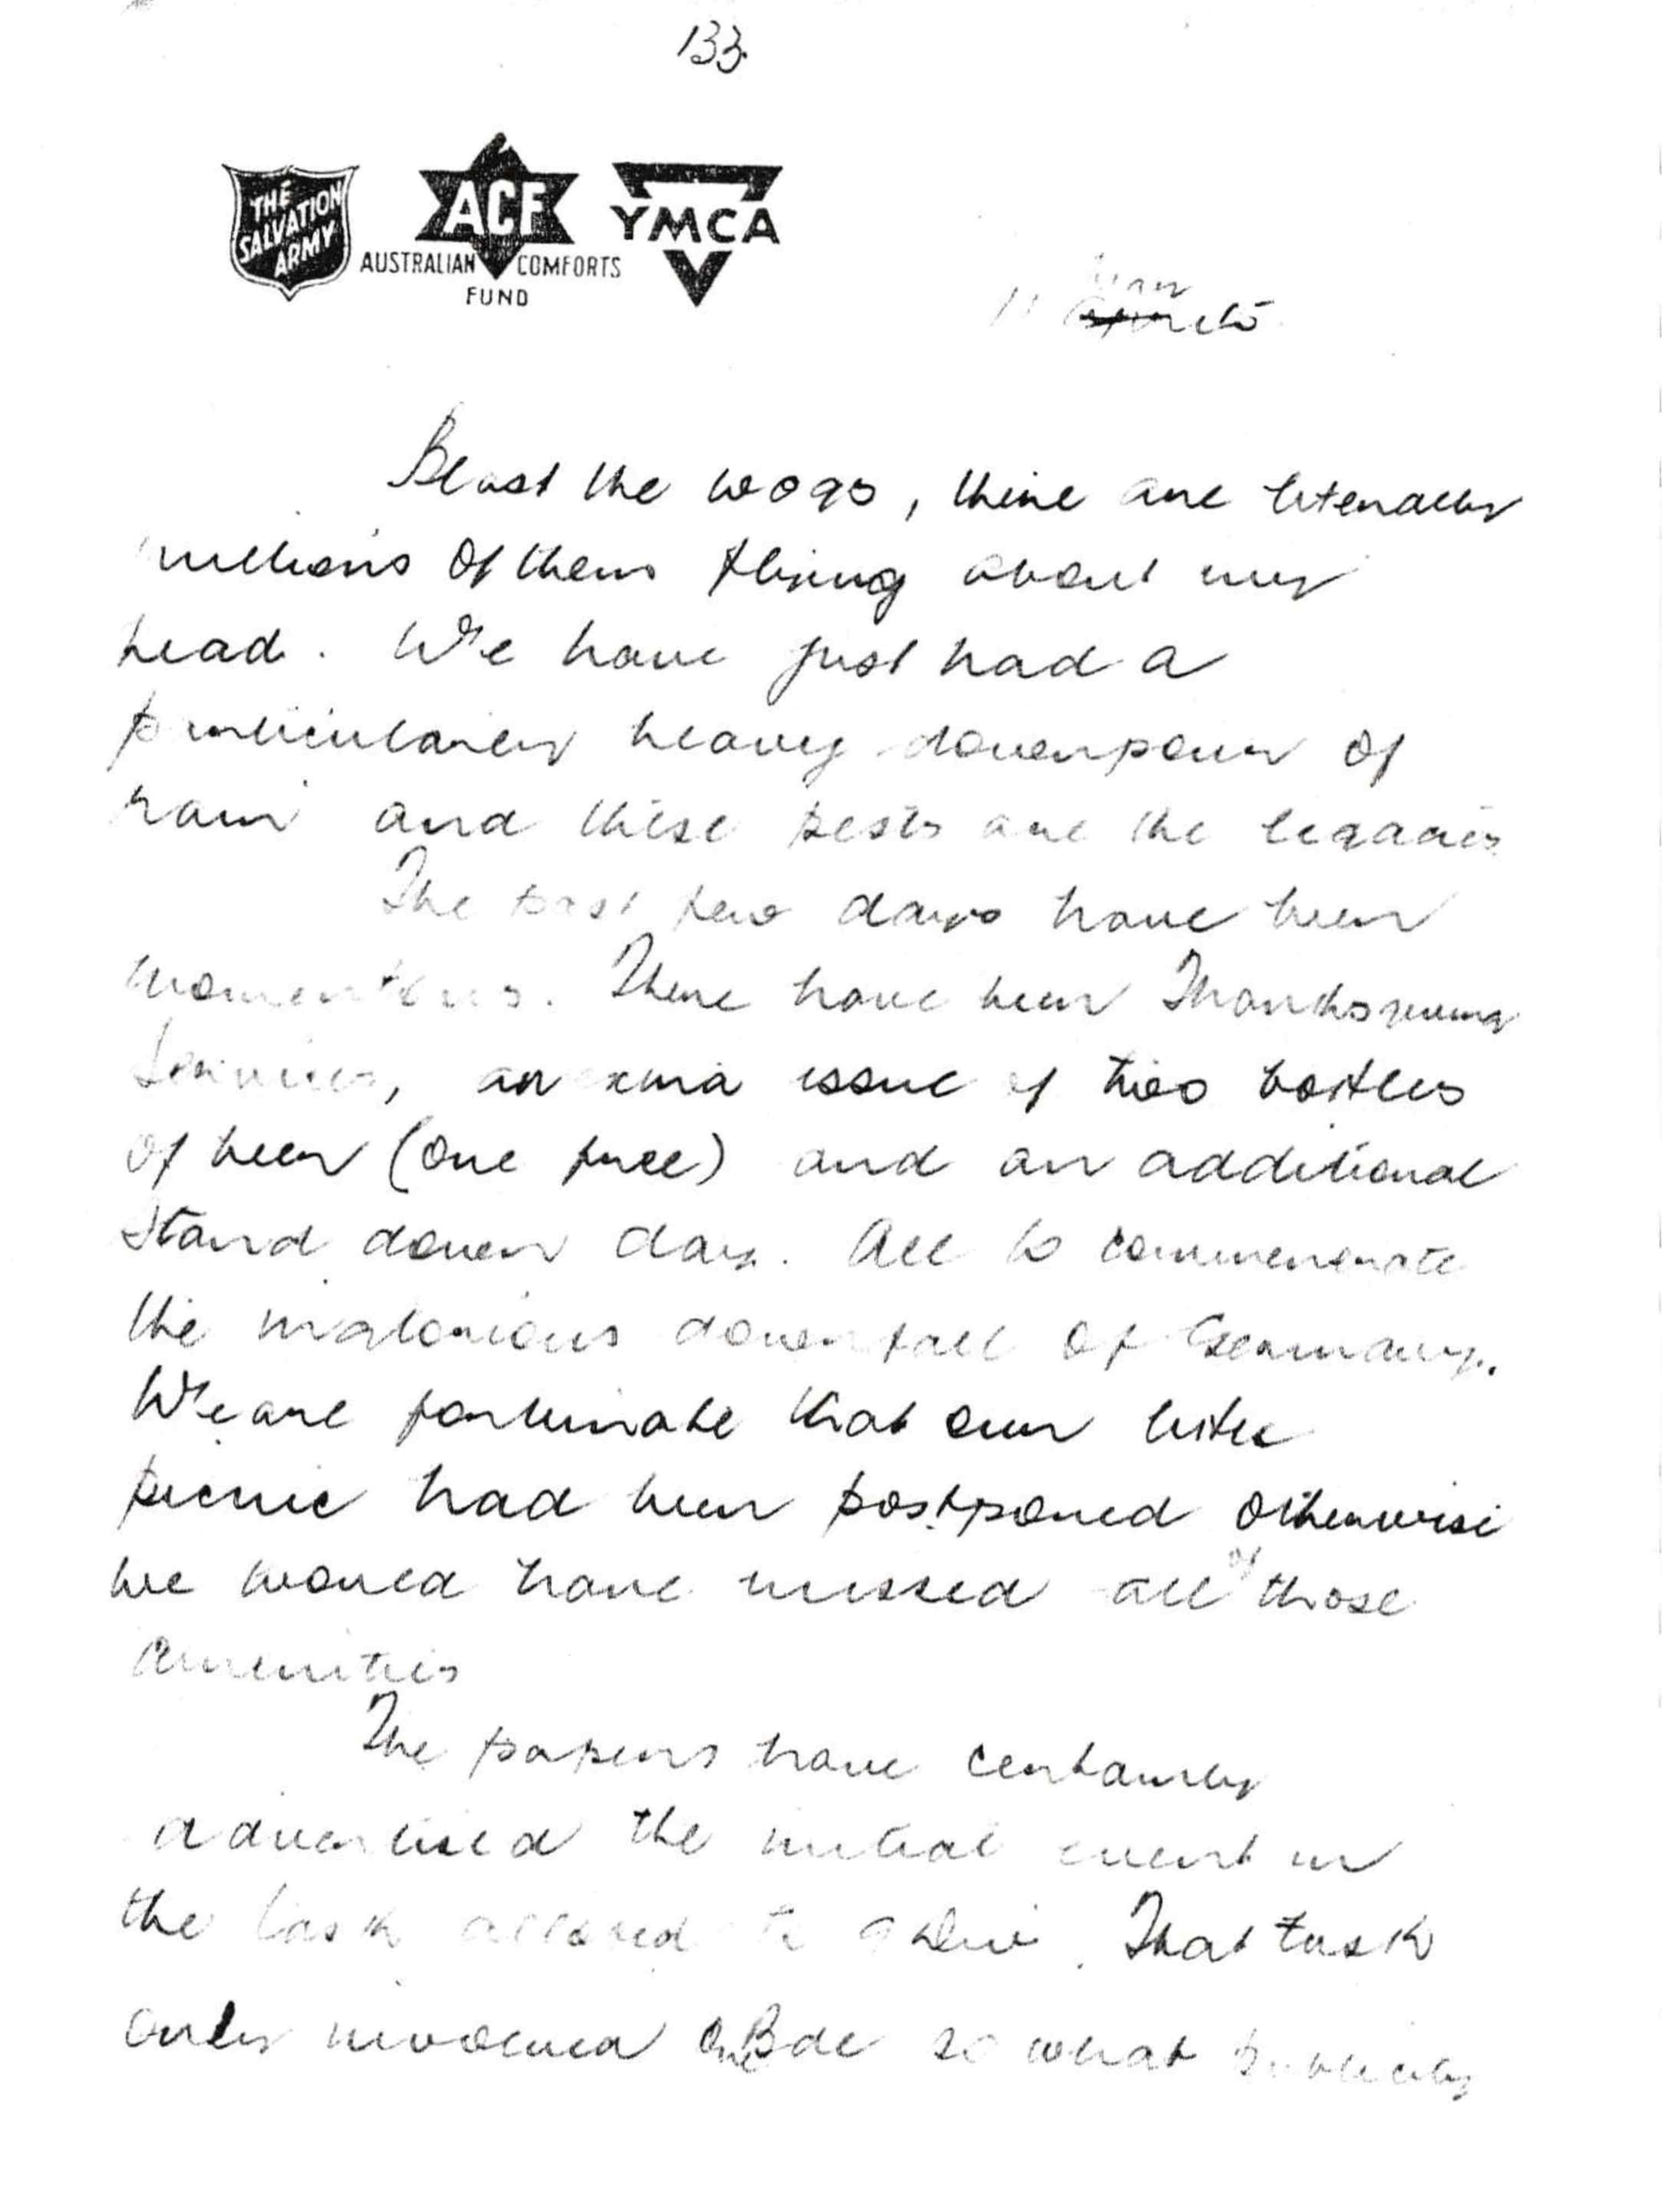 133.
THE SALVATION ARMY
ACF
AUSTRALIAN COMFORTS FUND
YMCA
11 May
April 45
Blast the wogs, there are literally
millions of them flying about my
head. We have just had a
particularly heavy downpour of
rain and these pests are the legacies
The past few days have been
momentous. There have been Thanksgiving
Services, an extra issue of two bottles
of beer (one free) and an additional
stand down day. All to commemorate
the inglorious downfall of Germany.
We are fortunate that our little
picnic had been postponed otherwise
we would have missed all of those
amenities
The papers have certainly
advertised the initial event in
the task allotted to 9 Div. That task
only involved One Bde so what publicity